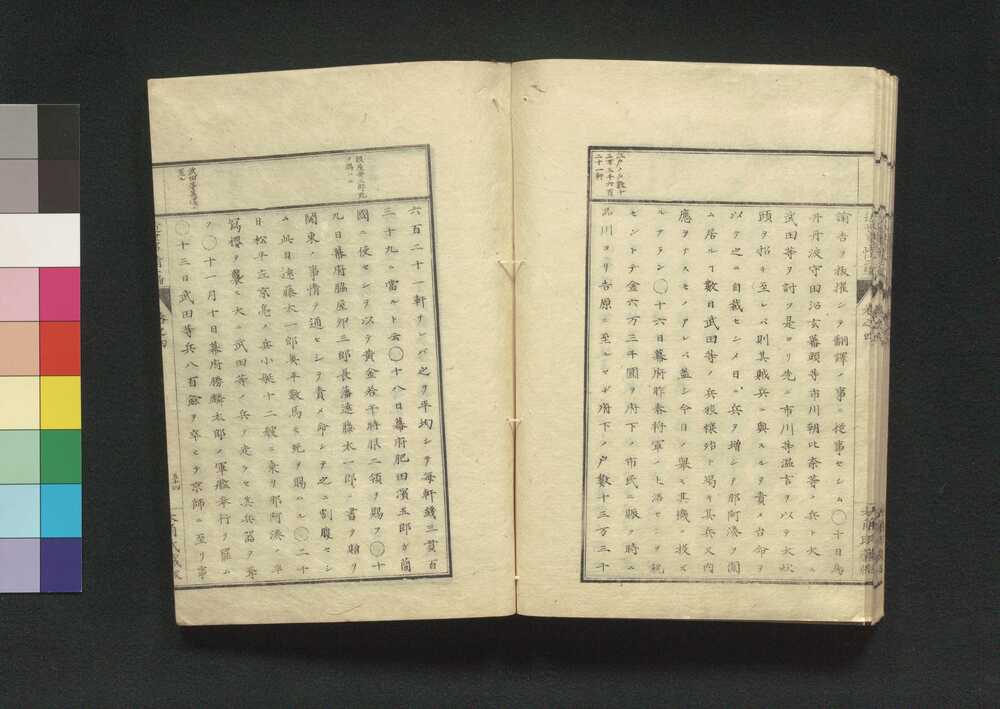 江戸ノ戸數十
三万三千六百
二十一軒
諭吉ヲ抜擢シテ翻譯ノ事ニ從事セシム○十日鳥
井丹波守田沼玄蕃頭等市川朝比奈等ノ兵ト大ニ
武田等ヲ討ツ是ヨリ先ニ市川等温言ヲ以テ大炊
頭ヲ招キ至レバ則其賊兵ニ與スルヲ責メ台命ヲ
以テ之ニ自裁セシメ日ニ兵ヲ増シテ那阿湊ヲ圍
ム居ル丁數日武田等ノ兵粮樸殆ト竭キ其兵又内
應ヲナスモノアレバ蓋シ今日ノ舉
ルナラン○十六日幕府昨春將軍ノ上洛セシヲ祝
セントテ金六万三千圓ヲ府下ノ市民ニ賑ハ時ニ
品川ヨリ吉原ニ至ルマデ府下ノ戸數十三万三千
脇屋卯三郎死
ヲ賜ハル
六百二十一軒ナレバ之ヲ平均シテ毎軒錢三貫百
三十九ニ當ルト云○十八日幕府肥田濱五郎ガ蘭
國ニ使セシヲ以テ黄金若干時服二領ヲ賜フ○十
九日幕府脇屋卯三郎長藩遠藤太一郎ニ書ヲ贈リ
関東ノ事情ヲ通セシヲ責メ命シテ之ニ割腹セシ
ム此日遠藤太一郎兵平數馬モ死ヲ賜ハル○二十
日松平左京亮ノ兵小艇十二艘ニ乗リ那阿湊ノ
ヲ襲ヒ大ニ武田等ノ兵ヲ走ラセ其兵器ヲ奪
フ○十一月十日幕府勝麟太郎ノ軍艦奉行ヲ罷ム
○十三日武田等兵八百餘ヲ率ヒテ京師ニ至リ事